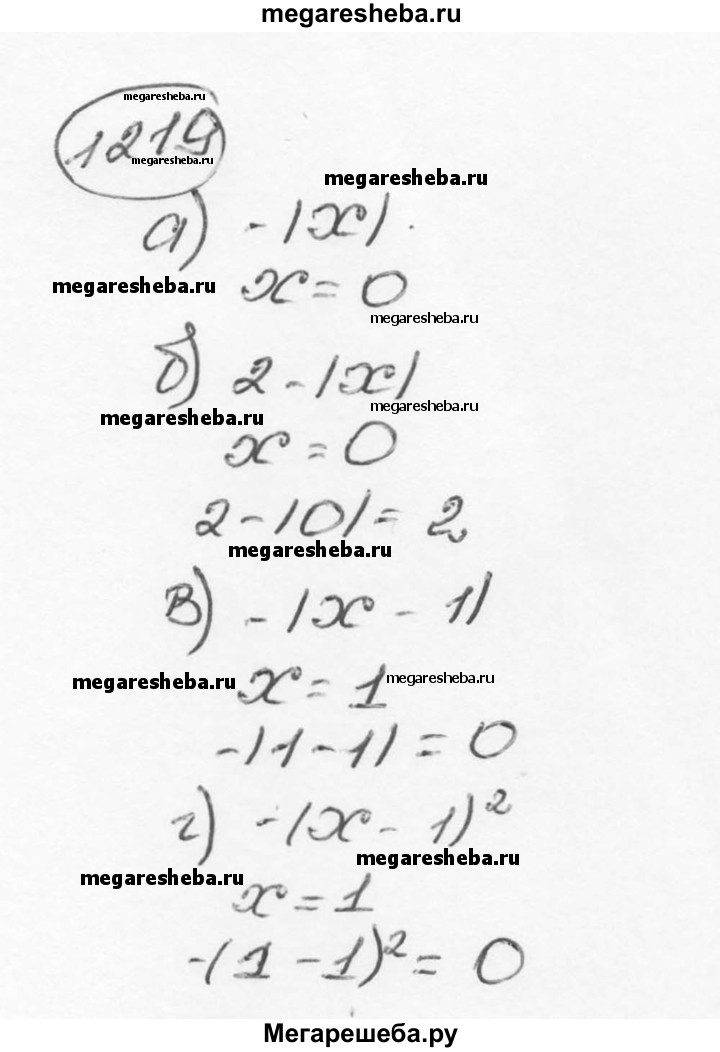 megaresheba.ru
megaresheba.ru
1219
megaresheba.ru
megaresheba.ru
а) -|x|.
megaresheba.ru
x = 0
megaresheba.ru
б) 2 - |x|
megaresheba.ru
megaresheba.ru
x = 0
2 - |0| = 2
megaresheba.ru
в) - |x - 1|
megaresheba.ru
x = 1
megaresheba.ru
-|1 - 1| = 0
г) -(x - 1)²
megaresheba.ru
megaresheba.ru
x = 1
-(1 - 1)² = 0
Мегарешеба.ру